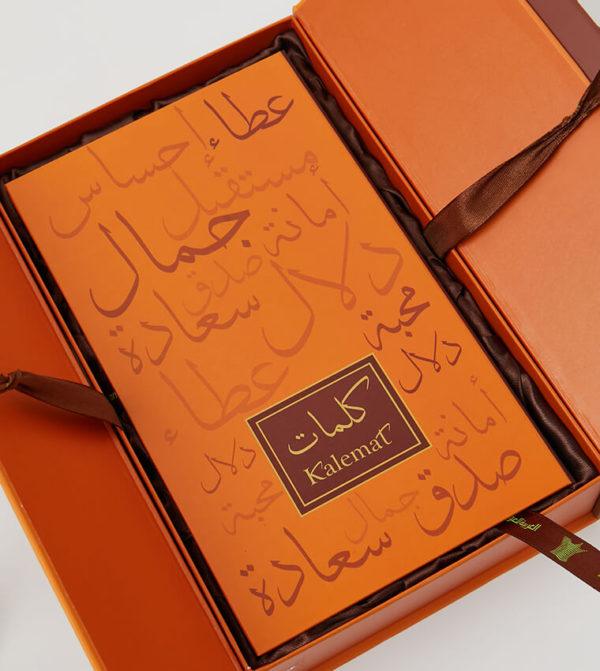 عطاء
إحساس
مستقبل
أمانة
جمال
صدق
دلال
سعادة
محبة
دلال
عطاء
كلمات
Kalemat
أمانة
دلال
صدق
محبة
جمال
سعادة
العربية للعود